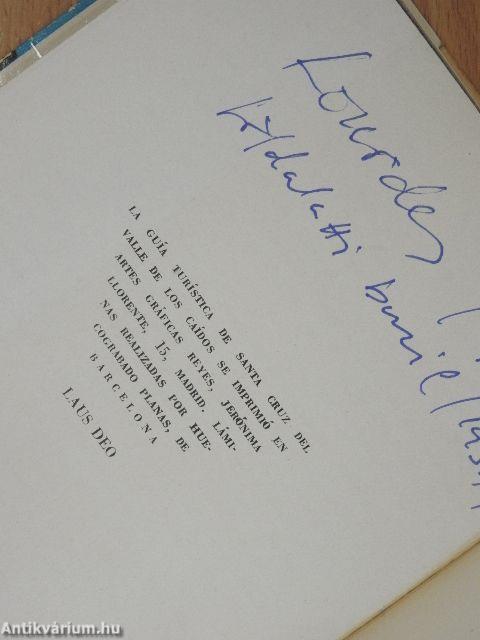 Lourdes
LA GUÍA TURÍSTICA DE SANTA CRUZ DEL
VALLE DE LOS CAÍDOS SE IMPRIMIÓ EN
ARTES GRÁFICAS REYES, JERÓNIMA
LLORENTE, 15, MADRID. LÁMI-
NAS REALIZADAS POR HUE-
COGRABADO PLANAS, DE
BARCELONA
LAUS DEO
Antikvárium.hu